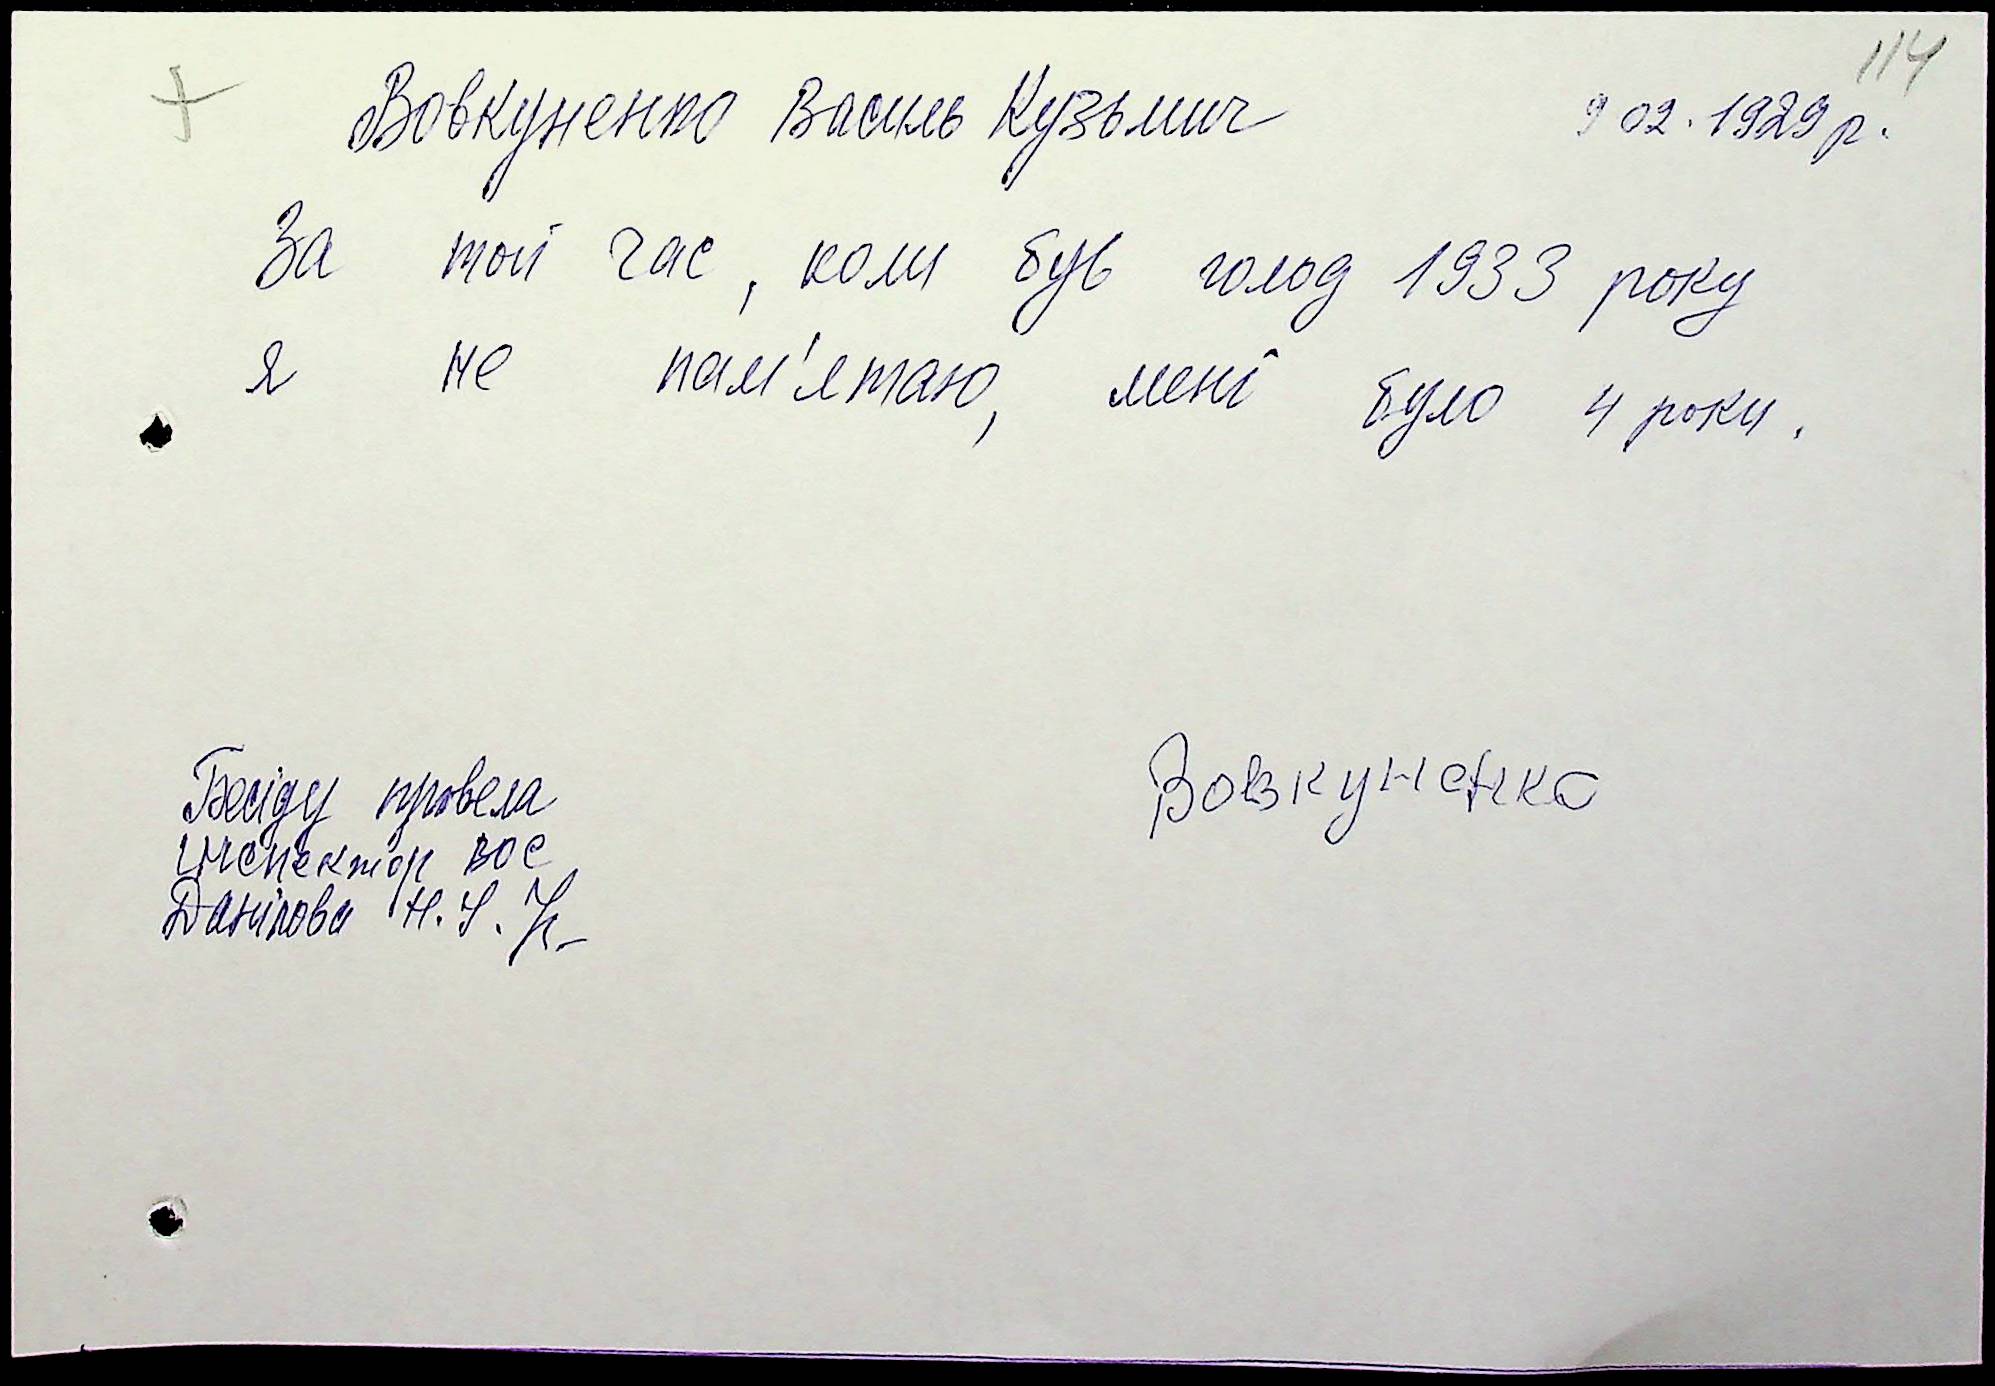 114
Вовкуненко Василь Кузьмич 9 02. 1929 р.
За той час, коли був голод 1933 року
я не пам'ятаю, мені було 4 роки.
Вовкуненко
Бесіду провела
інспектор ВОС
Данілова Н.